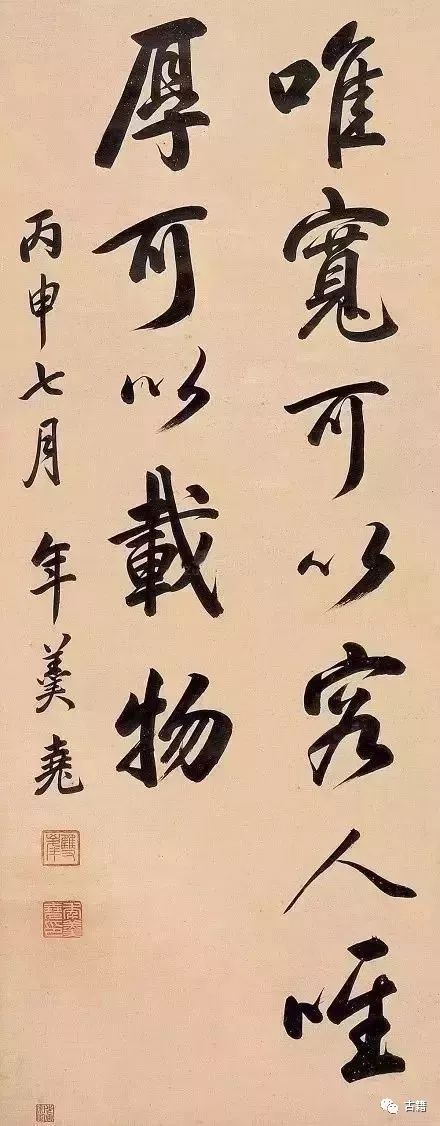 唯寬可以容人唯
厚可以載物
丙申七月 年羹堯
古籍